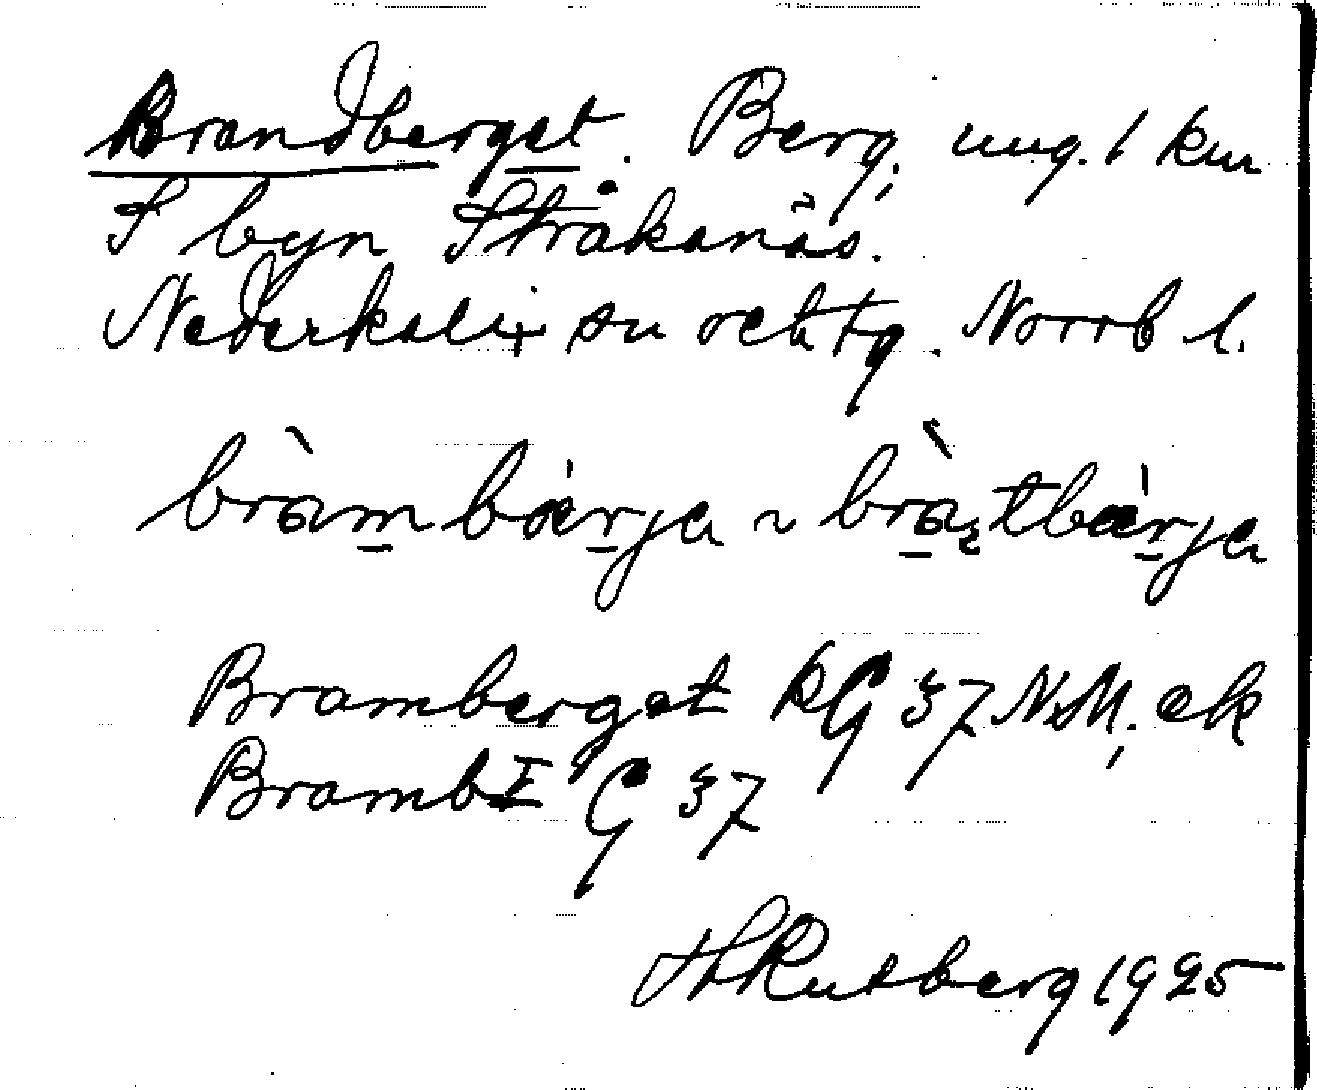 Brandberget. Berg, ung. 1 km
S byn Stråkanäs.
Nederkalix sn o ct tg. Norrb l.
bràmbærja ~ bràntbærja
Bramberget kG 37 NSM, ek
Bramb I G 37
H Rutberg 1925